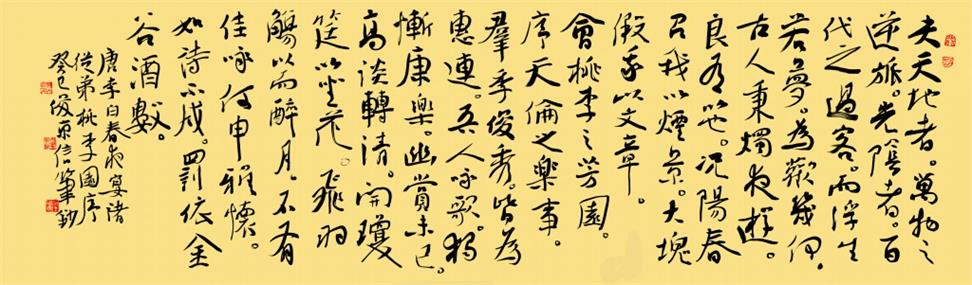 夫天地者。萬物之
逆旅。光陰者。百
代之過客。而浮生
若夢。為歡幾何。
古人秉燭夜遊。
良有以也。況陽春
召我以煙景。大塊
假我以文章。
會桃李之芳園。
序天倫之樂事。
羣季俊秀。皆為
惠連。吾人咏歌。獨
慚康樂。幽賞未已。
高談轉清。開瓊
筵以坐花。飛羽
觴以而醉月。不有
佳咏何申雅懷。
如詩不成。罰依金
谷酒數。
唐李白春夜宴諸
從弟桃李園序
癸巳信筆鈔